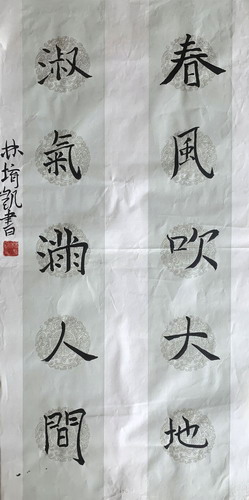 春風吹大地
淑氣滿人間
林堉凱書